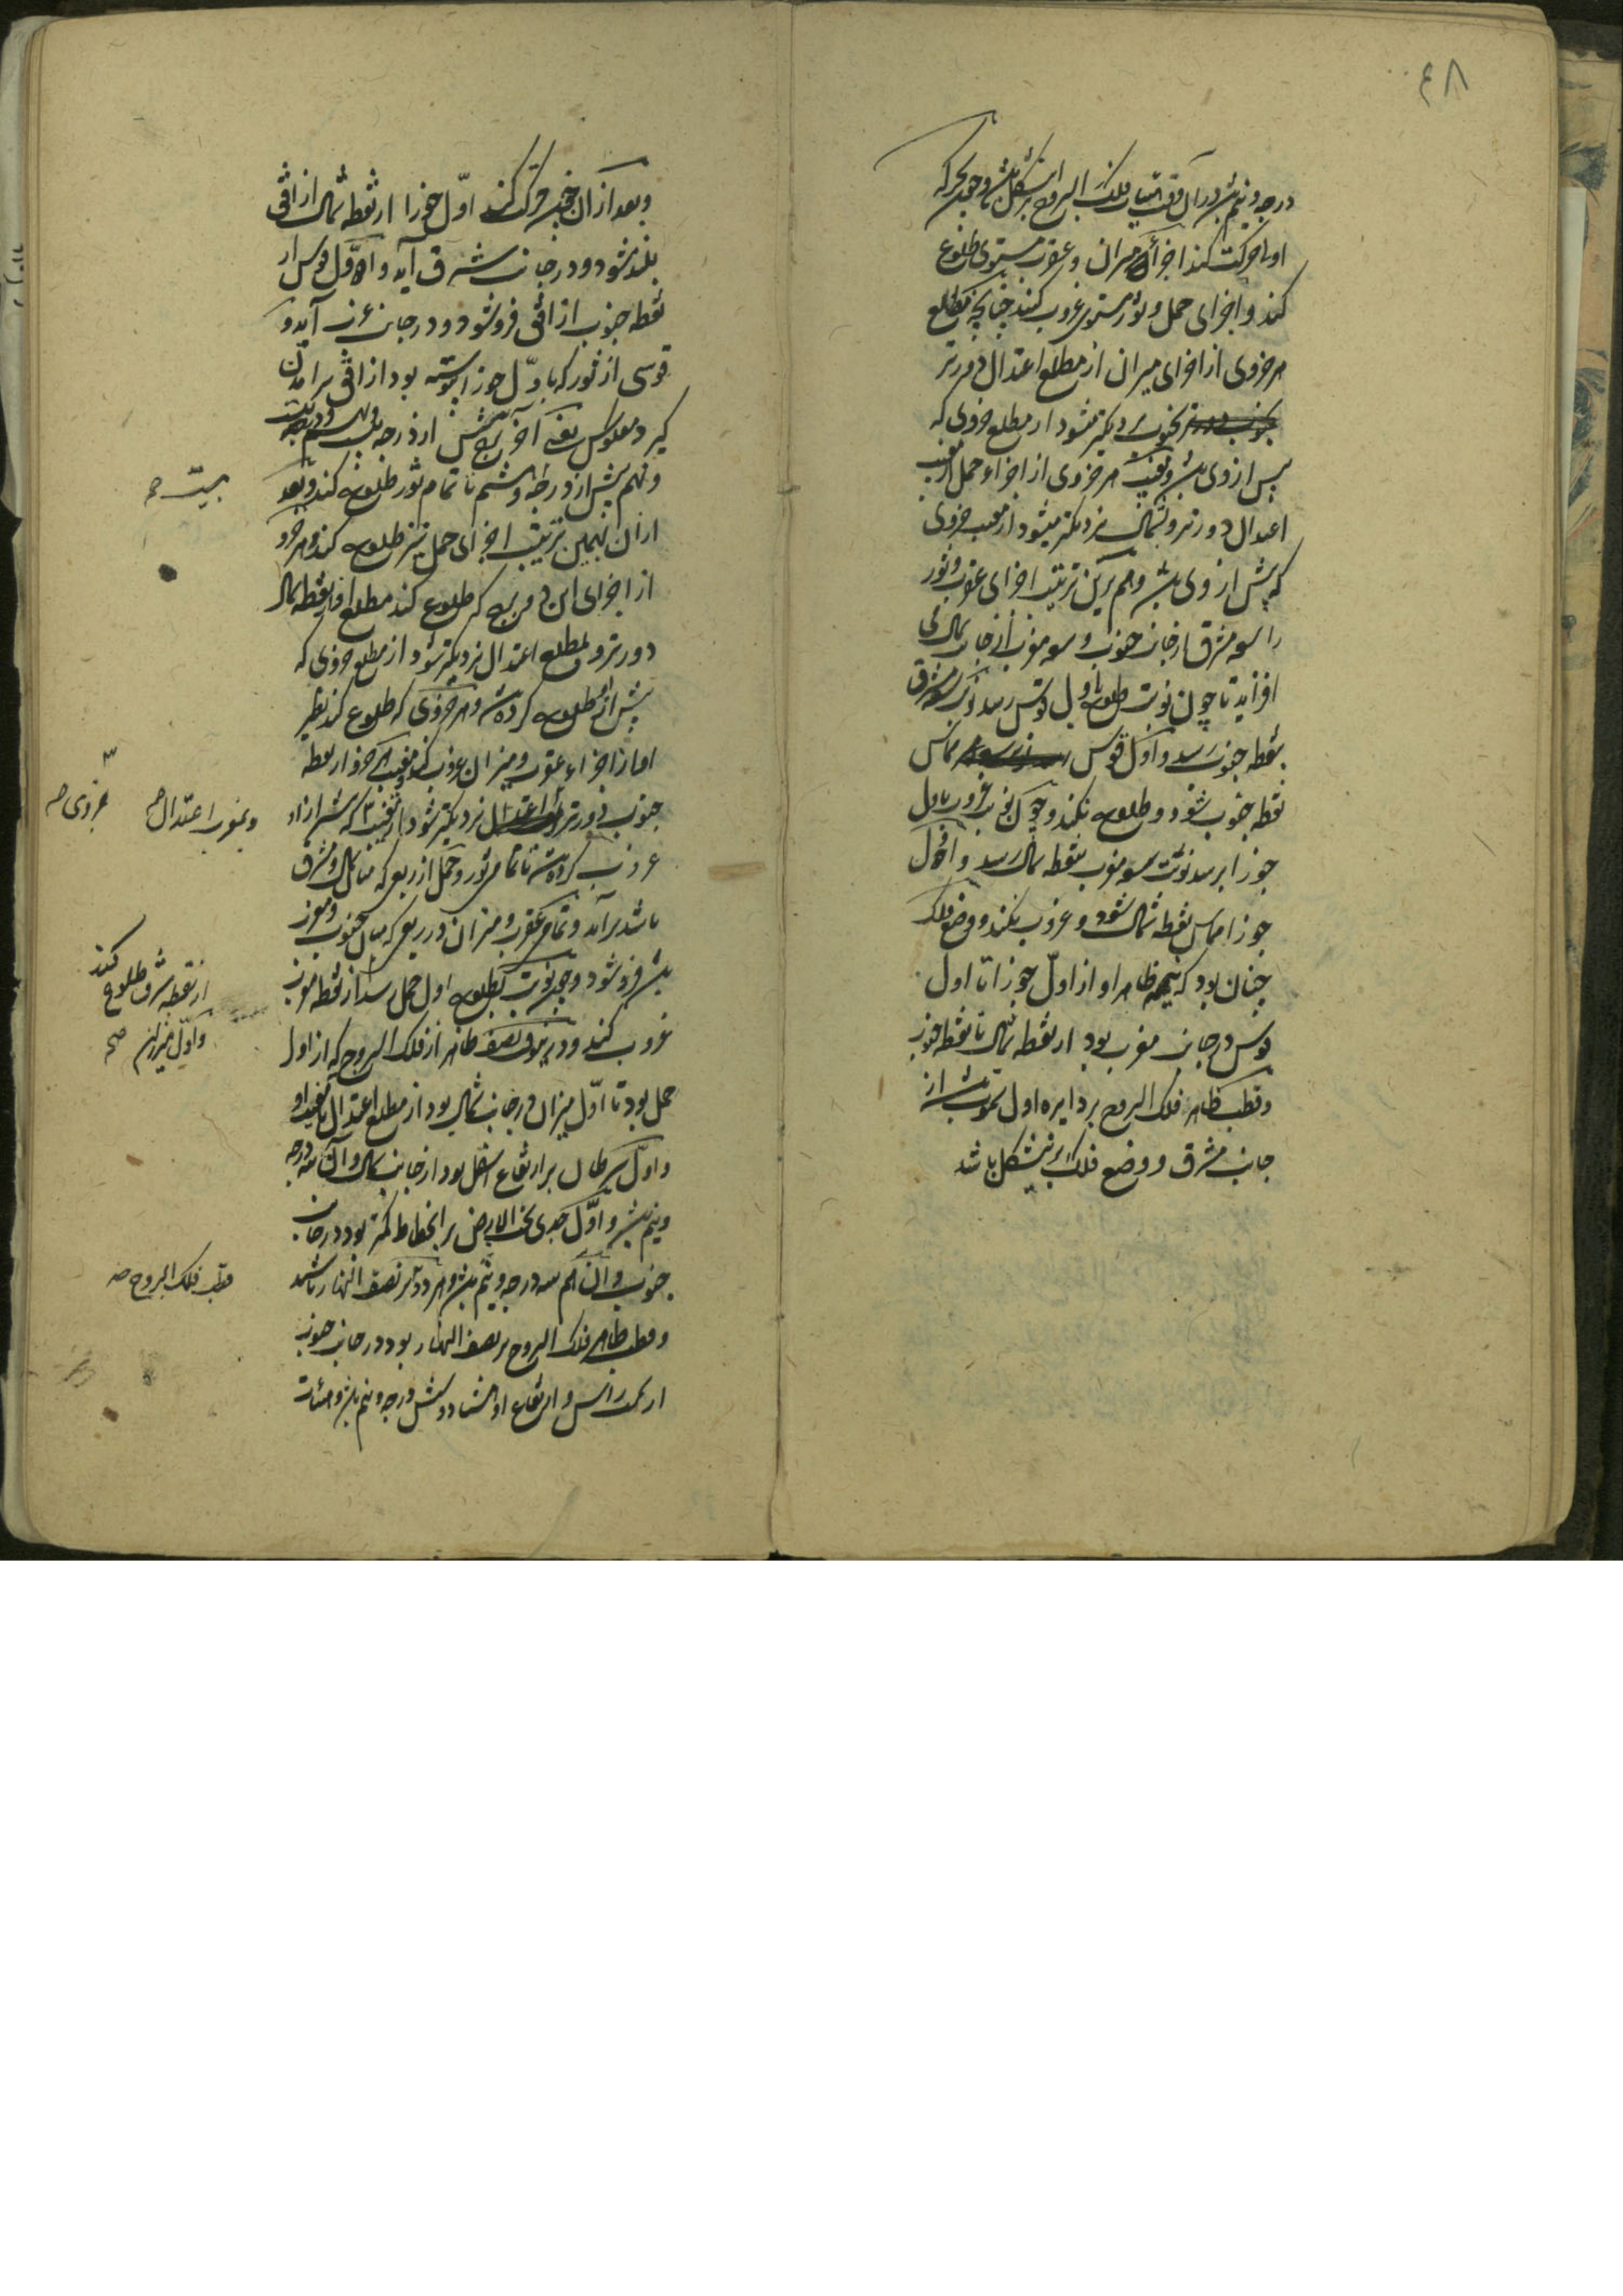 ۴۸
درجه و نیم باشد در آن وقت هیات فلک البروج برین شکل باشد و چون بحرکه
اولی حرکت کند اجزای میزان و عقرب مستوی طلوع
کند و اجزای حمل و ثور مستوی غروب کند چنانچه مطلع
هر جزوی از اجزای میزان از مطلع اعتدال دورتر
بجنوب نزدیکتر میشود از مطلع جزوی که
پیش از وی باشد و مغیب هر جزوی از اجزاء حمل از مغیب
اعتدال دورتر و بشمال نزدیکتر میشود از مغیب جزوی
که پیش از وی باشد و هم برین ترتیب اجزای عقرب و ثور
را سعه مشرق از جانب جنوب و سعه مغرب از جانب شمال می
افزاید تا چون نوبت طلوع باول قوس رسد سعه مشرق
بنقطه جنوب رسد و اول قوس مماس
نقطه جنوب شود و طلوع نکند و چون نوبت غروب باول
جوزا رسد نوبت سعه مغرب بنقطه شمال رسد و اول
جوزا مماس نقطه شمال شود و غروب نکند و وضع فلک
چنان بود که نیمه ظاهر او از اول جوزا تا اول
قوس در جانب مغرب بود از نقطه شمال تا نقطه جنوب
و قطب ظاهر فلک البروج بر دایره اول سموت باشد از
جانب مشرق و وضع فلک برین شکل باشد
و بعد از آن چون حرکت کند اول جوزا از نقطه شمال از افق
بلند شود و در جانب مشرق آید و اول قوس از
نقطه جنوب از افق فرو شود و در جانب غرب آید و
قوسی از ثور که باول جوزا پیوسته بود از افق برامدن
گیرد معکوس یعنی آخر برج پیش از درجه بیست و نهم و درجه بیست
و نهم پیش از درجه و هشتم تا تمام ثور طلوع کند و بعد
بیست صح
از آن بهمین ترتیب اجزای حمل نیز طلوع کند و هر جزو
از اجزای این دو برج که طلوع کند مطلع او از نقطه شمال
دورتر و بمطلع اعتدال نزدیکتر شود از مطلع جزوی که
پیش از آن طلوع کرده باشد و هر جزوی که طلوع کند نظیر
او از اجزاء عقرب و میزان غروب کند و مغیب هر جزو از نقطه
جنوب دورتر نزدیکتر شود از مغیب آنکه پیش از او
و بمغرب اعتدال صح
جزوی صح
غروب کرده باشد تا تمام ثور و حمل از ربعی که میان شمال و مشرق
باشد برآید و تمام عقرب و میزان در ربعی که میان جنوب و مغرب
باشد فرو شود و چون نوبت بطلوع اول حمل رسد از نقطه مغرب
از نقطه مشرق طلوع کند
و اول میزان صح
غروب کند و درین وقت نصف ظاهر از فلک البروج که از اول
حمل بود تا اول میزان در جانب شمال بود از مطلع اعتدال تا مغیب او
و اول سرطان بر ارتفاع اسفل بود از جانب شمال و آن سه درجه
و نیم باشد و اول جدی تحت الارض بر انحطاط کمتر بود در جانب
جنوب و آن هم سه درجه و نیم باشد و هر دو بر نصف النهار باشند
قطب فلک البروج صح
و قطب ظاهر فلک البروج بر نصف النهار بود در جانب جنوب
از سمت رأس و ارتفاع او هشتاد و شش درجه و نیم باشد و هیأت